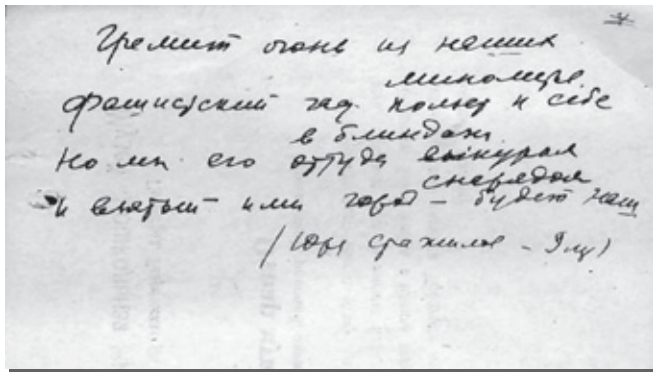 Гремит огонь из наших
минометов
Фашистский гад ползет к себе
в блиндаж
Но мы его оттуда выкурим
снарядом
И взятый ими город – будет наш